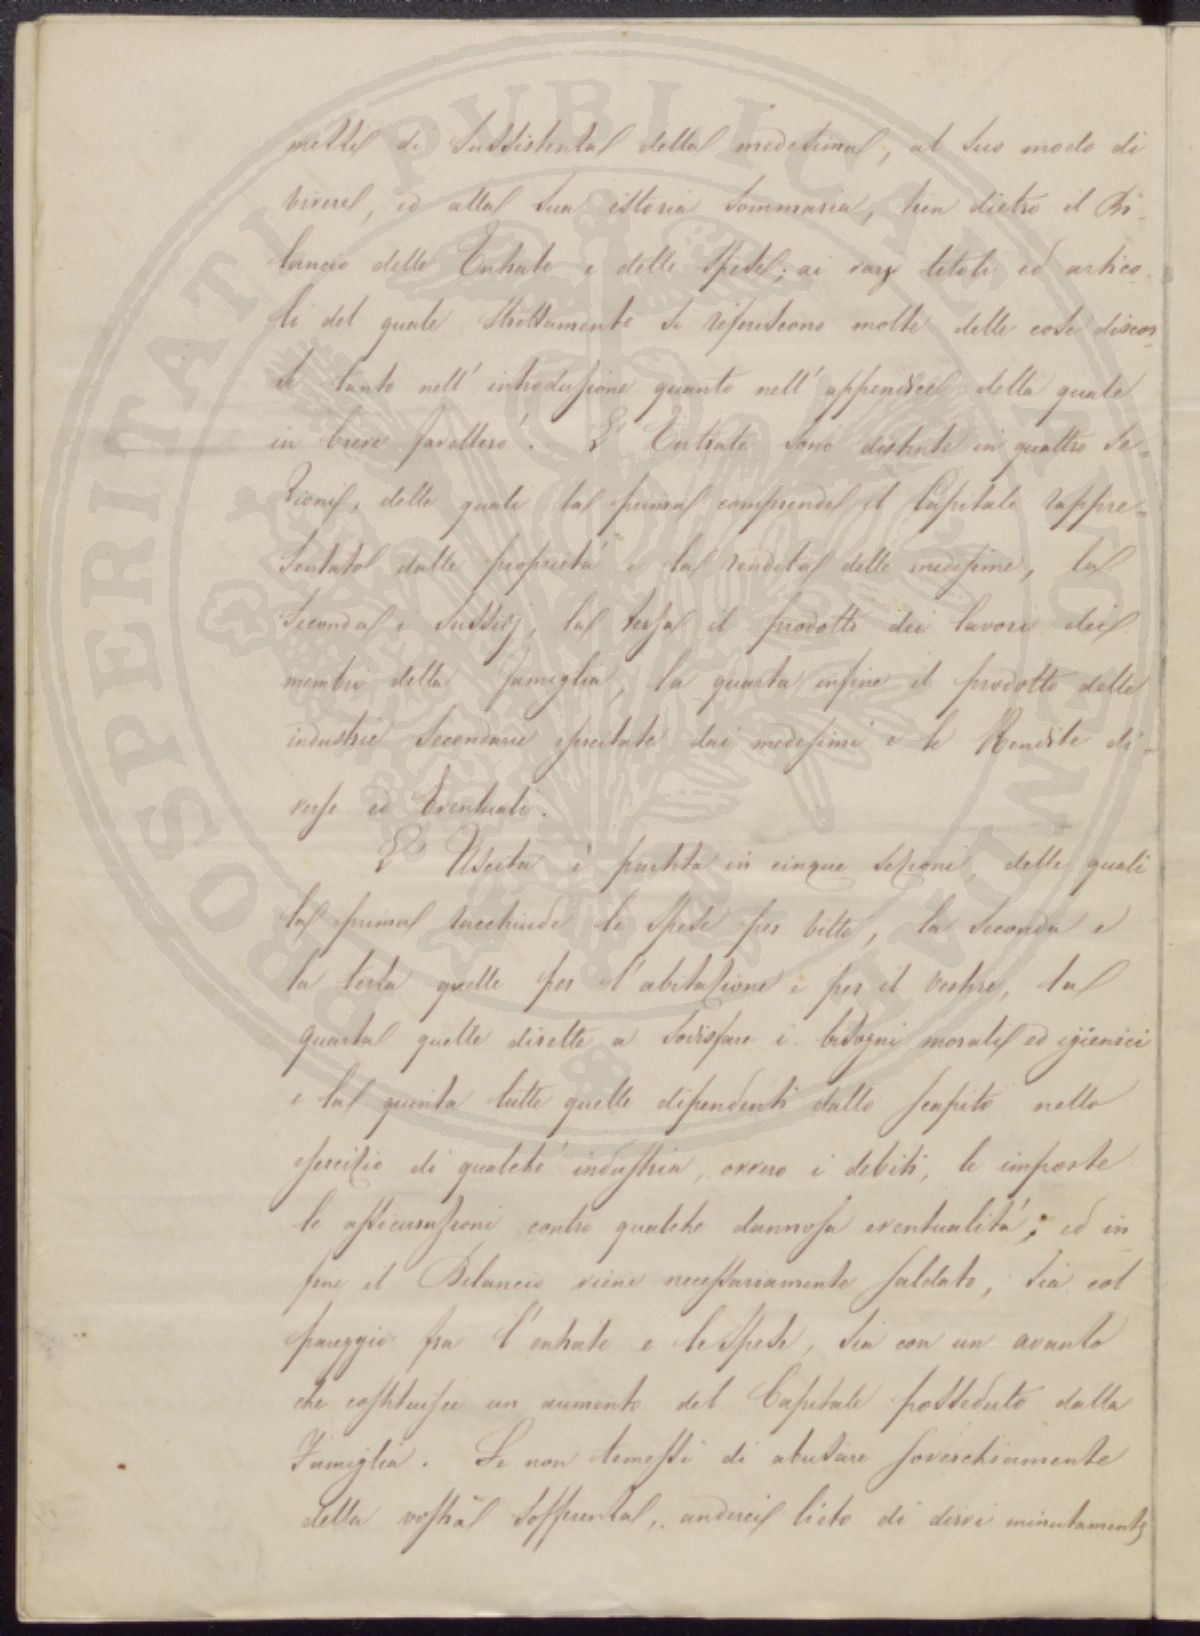 mezzi di sussistenza della medesima, al suo modo di
vivere, ed alla sua istoria sommaria, tien dietro il Bi-
lancio delle Entrate e delle Spese; ai varj titoli ed artico-
li del quale strettamente si riferiscono molte delle cose discor-
se tanto nell' introduzione quanto nell' appendice della quale
in breve favellerò. L' Entrate sono distinte in quattro Se-
zioni, delle quali la prima comprende il Capitale rappre-
sentato dalle proprietà e la rendita delle medesime, la
seconda i sussidj, la terza il prodotto dei lavori dei
membri della Famiglia, la quarta infine il prodotto delle
industrie secondarie esercitate dai medesimi e le Rendite di-
verse ed Eventuali.
L' Uscita è partita in cinque sezioni, delle quali
la prima racchiude le spese per vitto, la seconda e
la terza quelle per l' abitazione e per il vestire, la
quarta quelle dirette a sodisfare i bisogni morali ed igienici
e la quinta tutte quelle dipendenti dallo scapito nello
esercizio di qualche industria, ovvero i debiti, le imposte
le assicurazioni contro qualche dannosa eventualità; ed in
fine il Bilancio viene necessariamente saldato, sia col
pareggio fra l' entrate e le spese, sia con un avanzo
che costituisce un aumento del Capitale posseduto dalla
Famiglia. Se non temessi di abusare soverchiamente
della vostra sofferenza, anderei lieto di dirvi minutamente
PROSPERITATI PUBLICAE